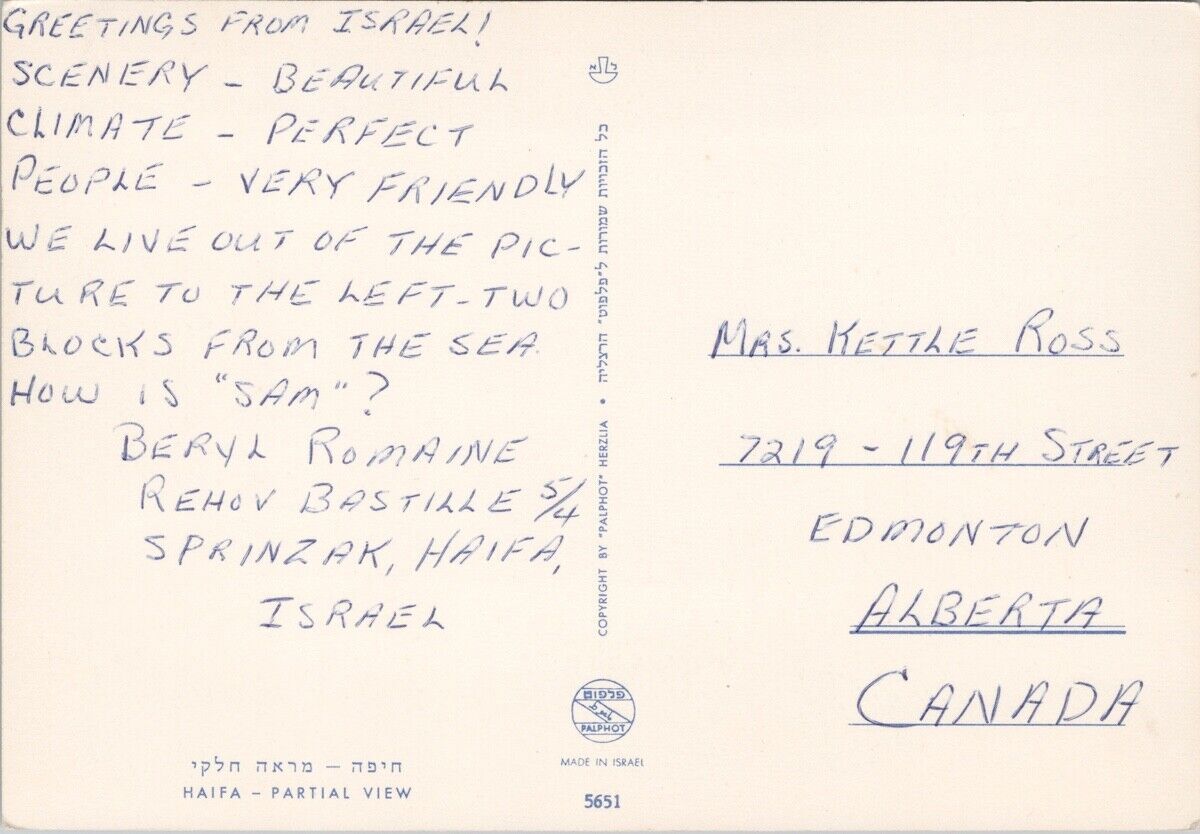 GREETINGS FROM ISRAEL!
SCENERY - BEAUTIFUL
CLIMATE - PERFECT
PEOPLE - VERY FRIENDLY
WE LIVE OUT OF THE PIC-
TURE TO THE LEFT - TWO
BLOCKS FROM THE SEA.
HOW IS "SAM"?
BERYL ROMAINE
REHOV BASTILLE 5/4
SPRINZAK, HAIFA,
ISRAEL
חיפה — מראה חלקי
HAIFA - PARTIAL VIEW
COPYRIGHT BY "PALPHOT" HERZLIA • כל הזכויות שמורות ל"פלפוט" הרצליה
פלפוט
PALPHOT
MADE IN ISRAEL
5651
MRS. KETTLE ROSS
7219 - 119TH STREET
EDMONTON
ALBERTA
CANADA